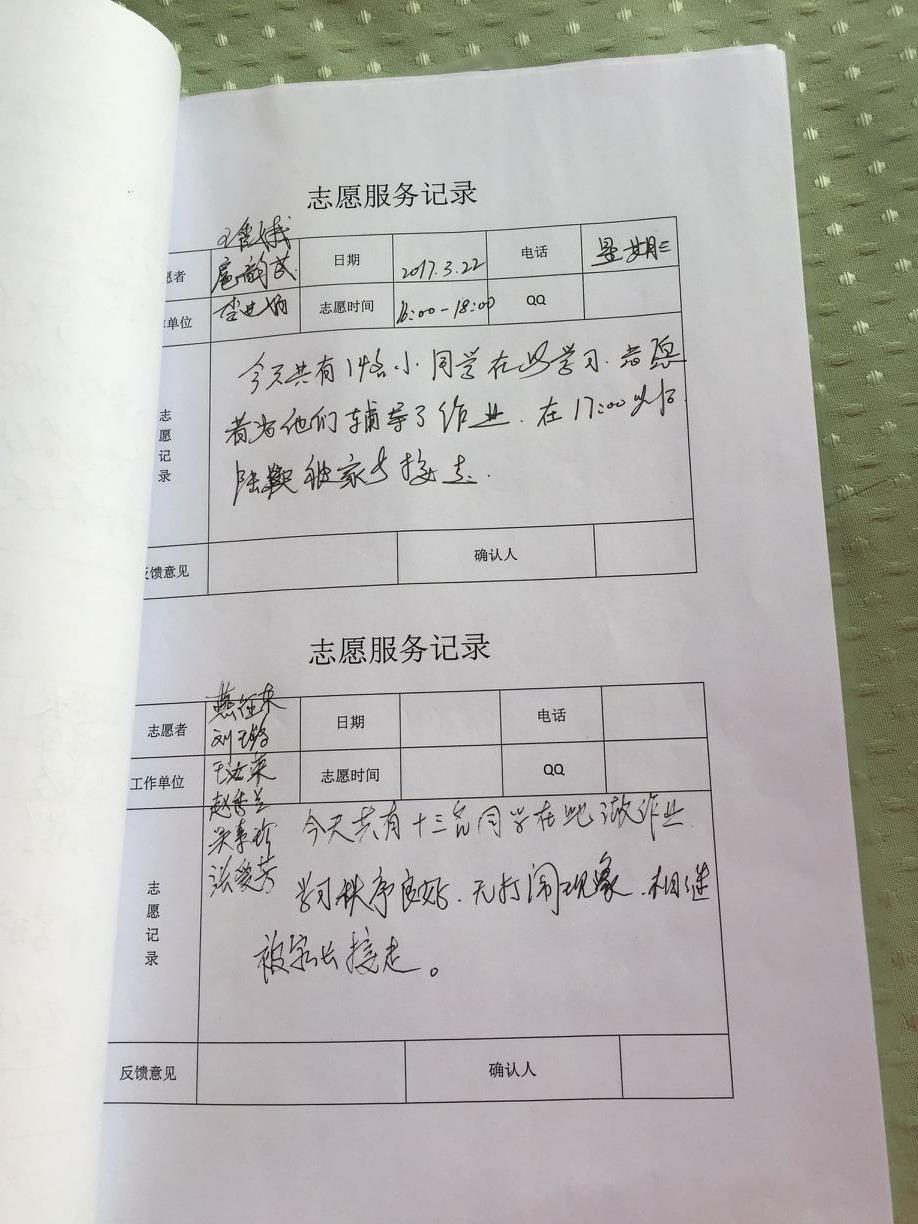 志愿服务记录
愿者 日期 2017.3.22 电话 星期三
单位 志愿时间 16:00-18:00 QQ
志愿记录
今天共有14名小同学在此学习.志愿
者为他们辅导了作业.在17:00以后
陆续被家长接走.
反馈意见 确认人
志愿服务记录
志愿者 日期 电话
刘玉玲
工作单位 志愿时间 QQ
赵秀兰
张爱芳
志愿记录
今天共有十三名同学在此做作业
学习秩序良好.无打闹现象.相继
被家长接走。
反馈意见 确认人